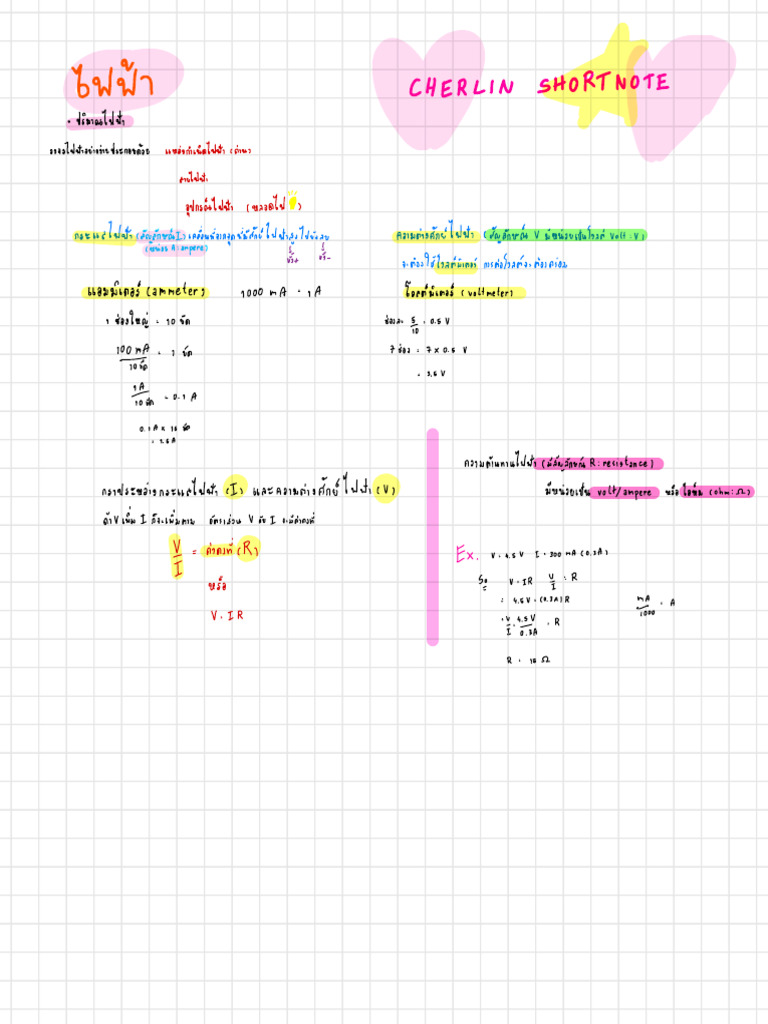 ไฟฟ้า
CHERLIN SHORTNOTE
• ปริมาณไฟฟ้า
วงจรไฟฟ้าอย่างง่ายประกอบด้วย แหล่งกำเนิดไฟฟ้า (ถ่าน)
สายไฟฟ้า
อุปกรณ์ไฟฟ้า (หลอดไฟ)
กระแสไฟฟ้า (สัญลักษณ์ I) เคลื่อนที่จากจุดที่มีศักย์ไฟฟ้าสูงไปยังลบ
(หน่วย A : ampere)
ขั้ว+ ขั้ว-
ความต่างศักย์ไฟฟ้า (สัญลักษณ์ V มีหน่วยเป็นโวลต์ volt : V)
จะต้องใช้โวลต์มิเตอร์ การต่อโวลต์จะต้องคร่อม
แอมมิเตอร์ (ammeter) 1000 mA = 1A
1 ช่องใหญ่ = 10 ขีด
100 mA / 10 ขีด = 1 ขีด
1A / 10 ขีด = 0.1 A
0.1A ×
โวลต์มิเตอร์ (voltmeter)
ช่องละ 5/10 = 0.5 V
7 ช่อง = 7 × 0.5 V
= 3.5 V
กราประหว่างกระแสไฟฟ้า (I) และความต่างศักย์ไฟฟ้า (V)
ถ้า V เพิ่ม I ก็จะเพิ่มตาม อัตราส่วน V กับ I จะมีค่าคงที่
V/I = ค่าคงที่ (R)
หรือ
V = IR
ความต้านทานไฟฟ้า (มีสัญลักษณ์ R : resistance)
มีหน่วยเป็น volt/ampere หรือ โอห์ม (ohm : Ω)
Ex. V = 4.5V I = 300 mA (0.3A)
So V = IR V/I = R
= 4.5V = (0.3A) R
mA/1000 = A
= V/I = 4.5V/0.3A = R
R = 15 Ω